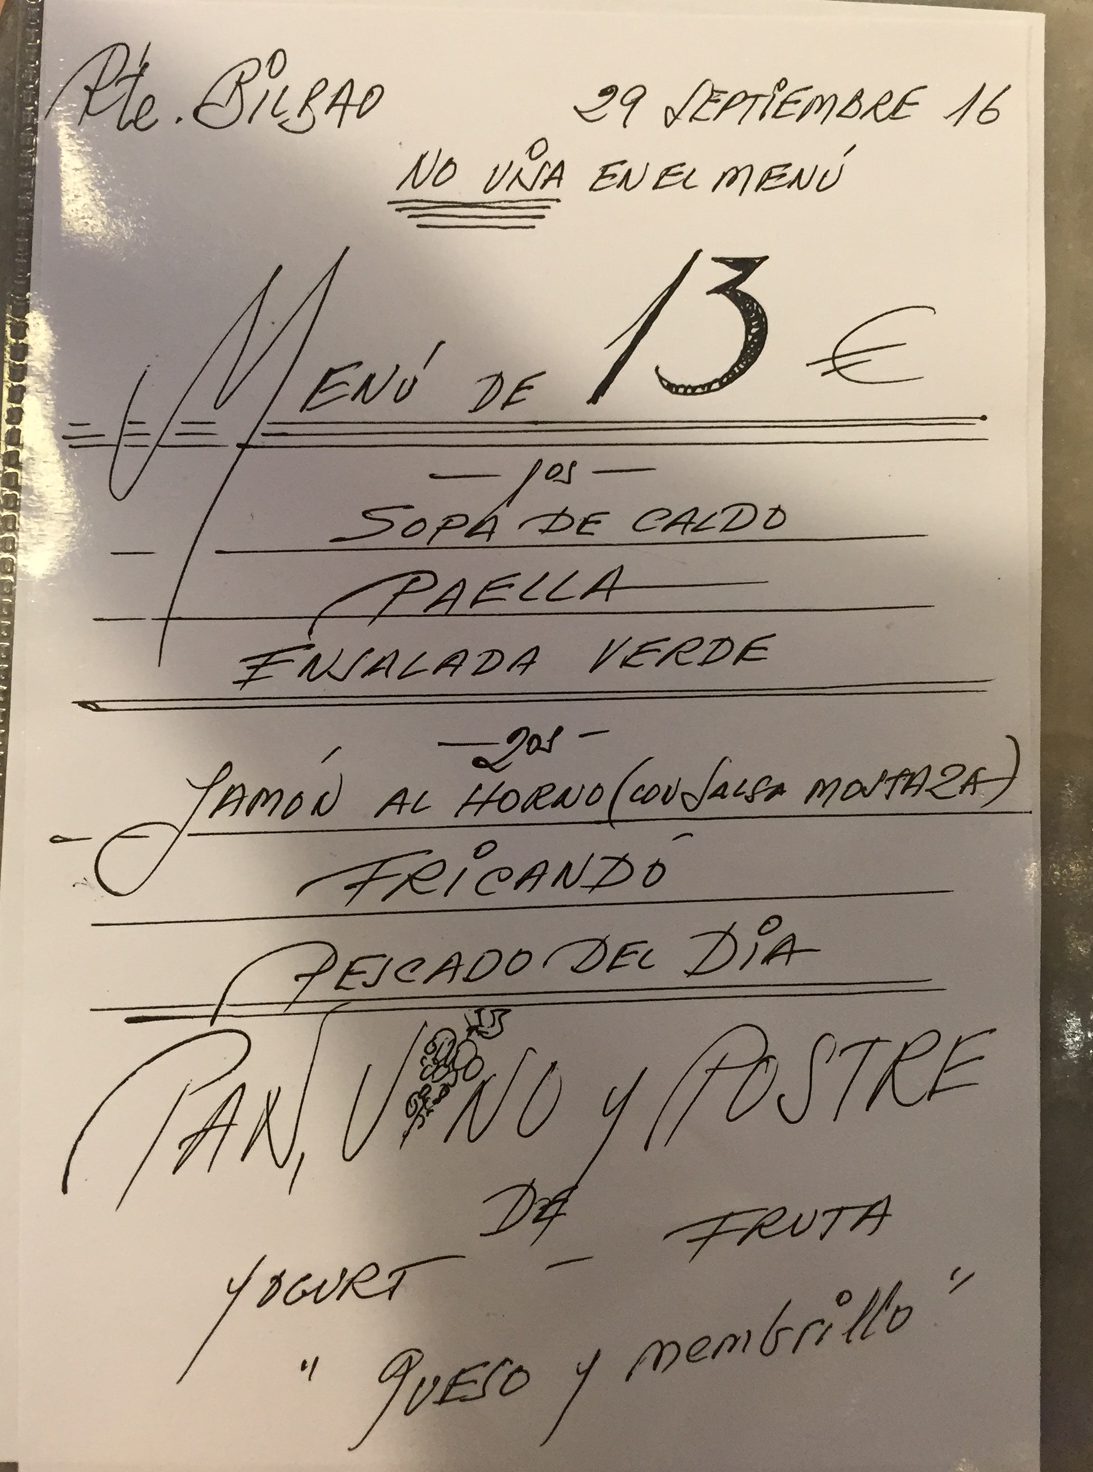 Rte. BILBAO
29 SEPTIEMBRE 16
NO VISA EN EL MENÚ
MENÚ DE 13 €
— 1os —
SOPA DE CALDO
PAELLA
ENSALADA VERDE
— 2os —
JAMÓN AL HORNO (CON SALSA MOSTAZA)
FRICANDÓ
PESCADO DEL DIA
PAN, VINO Y POSTRE
DE
YOGURT — FRUTA
" QUESO y membrillo "